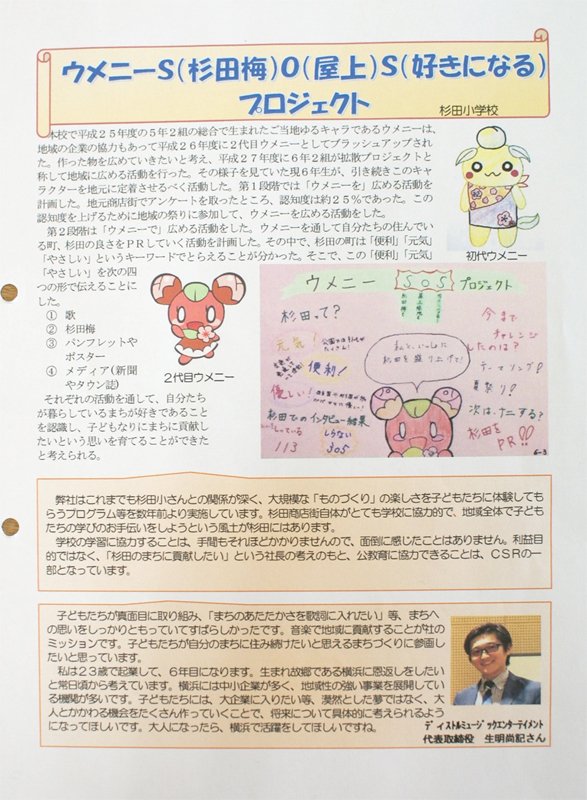 ウメニーS(杉田梅)O(屋上)S(好きになる)
プロジェクト
杉田小学校
本校で平成25年度の5年2組の総合で生まれたご当地ゆるキャラであるウメニーは、
地域の企業の協力もあって平成26年度に2代目ウメニーとしてブラッシュアップされ
た。作った物を広めていきたいと考え、平成27年度に6年2組が拡散プロジェクトと
称して地域に広める活動を行った。その様子を見ていた現6年生が、引き続きこのキャ
ラクターを地元に定着させるべく活動した。第1段階では「ウメニーを」広める活動を
計画した。地元商店街でアンケートを取ったところ、認知度は約25%であった。この
認知度を上げるために地域の祭りに参加して、ウメニーを広める活動をした。
第2段階は「ウメニーで」広める活動をした。ウメニーを通して自分たちの住んでい
る町、杉田の良さをPRしていく活動を計画した。その中で、杉田の町は「便利」「元気」
「やさしい」というキーワードでとらえることが分かった。そこで、この「便利」「元気」
「やさしい」を次の四
つの形で伝えることに
した。
① 歌
② 杉田梅
③ パンフレットや
ポスター
④ メディア(新聞
やタウン誌)
それぞれの活動を通して、自分たち
が暮らしているまちが好きであること
を認識し、子どもなりにまちに貢献し
たいという思いを育てることができた
と考えられる。
初代ウメニー
2代目ウメニー
ウメニー SOS プロジェクト
杉田って?
元気!
便利!
優しい!
杉田でのインタビュー結果
しっている しらない
113 305
私と、いっしょに
杉田を盛り上げて!
今まで
チャレンジ
したのは?
テーマソング!
夏祭り!
次は、ナニする?
杉田を
PR!!
6-3
弊社はこれまでも杉田小さんとの関係が深く、大規模な「ものづくり」の楽しさを子どもたちに体験しても
らうプログラム等を数年前より実施しています。杉田商店街自体がとても学校に協力的で、地域全体で子ども
たちの学びのお手伝いをしようという風土が杉田にはあります。
学校の学習に協力することは、手間もそれほどかかりませんので、面倒に感じたことはありません。利益目
的ではなく、「杉田のまちに貢献したい」という社長の考えのもと、公教育に協力できることは、CSRの一
部となっています。
子どもたちが真面目に取り組み、「まちのあたたかさを歌詞に入れたい」等、まちへ
の思いをしっかりともっていてすばらしかったです。音楽で地域に貢献することが社の
ミッションです。子どもたちが自分のまちに住み続けたいと思えるまちづくりに参画し
たいと思っています。
私は23歳で起業して、6年目になります。生まれ故郷である横浜に恩返しをしたい
と常日頃から考えています。横浜には中小企業が多く、地域性の強い事業を展開してい
る機関が多いです。子どもたちには、大企業に入りたい等、漠然とした夢ではなく、大
人とかかわる機会をたくさん作っていくことで、将来について具体的に考えられるよう
になってほしいです。大人になったら、横浜で活躍をしてほしいですね。
ディストルミュージックエンターテイメント
代表取締役 生明尚記さん